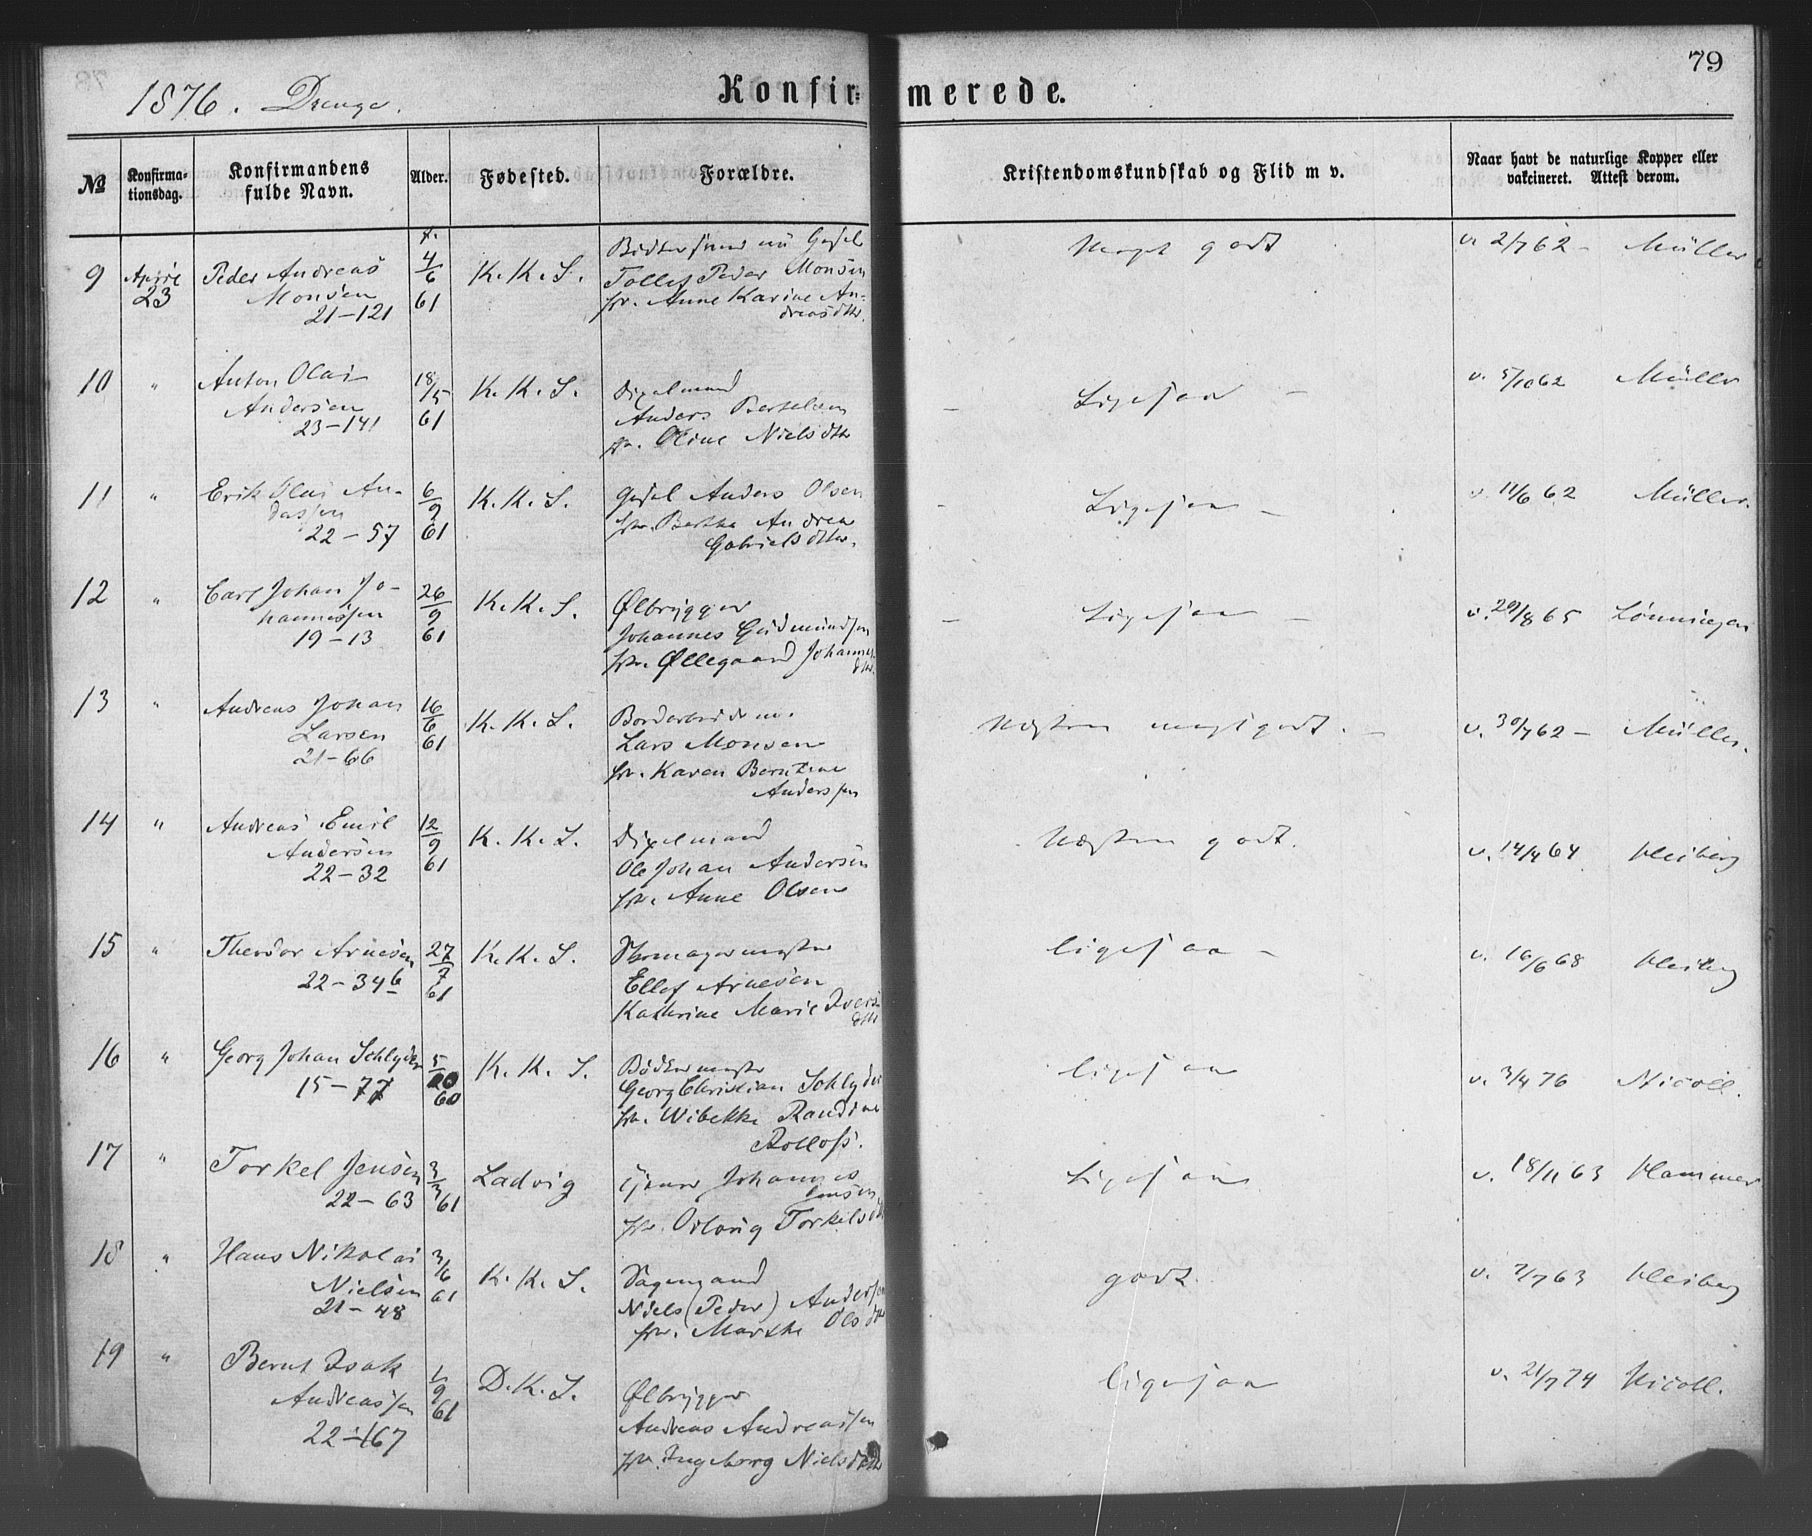 79
1876. Drenge.
Konfirmerede.
№ Konfirmationsdag. Konfirmandens fulde Navn. Alder. Fødested. Forældre. Kristendomskundskab og Flid m v. Naar havt de naturlige Kopper eller vakcineret. Attest derom.
9 April 23 Peder Andreas 4/6 K. K. S. Meget godt v. 2/7 62 – Müller
Monsen 61 Tollef Peder Monsen
21–121 fr. Anne Karine An-
dreasdtr.
10 " Anton Olai 18/5 K. K. S. Ligesaa – v. 5/10 62 Müller
Andersen 61 Anders Bertelsen
23–141 fr. Oline Nielsdtr
11 " Erik Olai An- 6/9 K. K. S. Gesel Anders Olsen – Ligesaa – v. 11/6 62 Müller.
dersen 61 fr. Berthe Andrea
22–57 Gabrielsdtr.
12 " Carl Johan Jo- 26/9 K. K. S. Ølbrygger – Ligesaa – v. 29/8 65 Lønningen
hannessen 61 Johannes Gudmundsen
19–13 fr. Øllegaard Johannesdtr.
13 " Andreas Johan 16/6 K. K. S. Næsten meget godt. – v. 30/7 62 – Müller.
Larsen 61 Lars Monsen
21–66 fr. Karen Berntine
Anderssen
14 " Andreas Emil 12/9 K. K. S. Næsten godt. v. 14/4 64 Heiberg
Andersen 61 Ole Johan Andersen
22–32 fr. Anne Olsen
15 " Theodor Arnesen 27/7 K. K. S. Skomagermester ligesaa – v. 16/6 68 Heiberg
22–346 61 Ellef Arnesen
Kathrine Marie Iversdtr
16 " Georg Johan Schlyder 5/10 K. K. S. Bødkermester ligesaa v. 3/4 76 Nicoll.
15–77 60 Georg Christian Schlyder
fr. Wibekke Randine
Rolloss.
17 " Torkel Jensen 3/3 Ladvig Johannes Ligesaa v. 18/11 63 Hammer
22–63 61 Jensen
fr. Torkelsdtr
18 " Hans Nikolai 3/6 K. K. S. godt. v. 2/7 63 Heiberg
Nielsen 61 Niels (Peder) Andersen
21–48 fr. Marthe Olsdtr
19 " Bernt Isak 1/9 D. K. S. Ølbrygger ligesaa v. 21/7 74 Nicoll.
Andreassen 61 Andreas Andreassen
22–167 fr. Ingeborg Nielsdtr